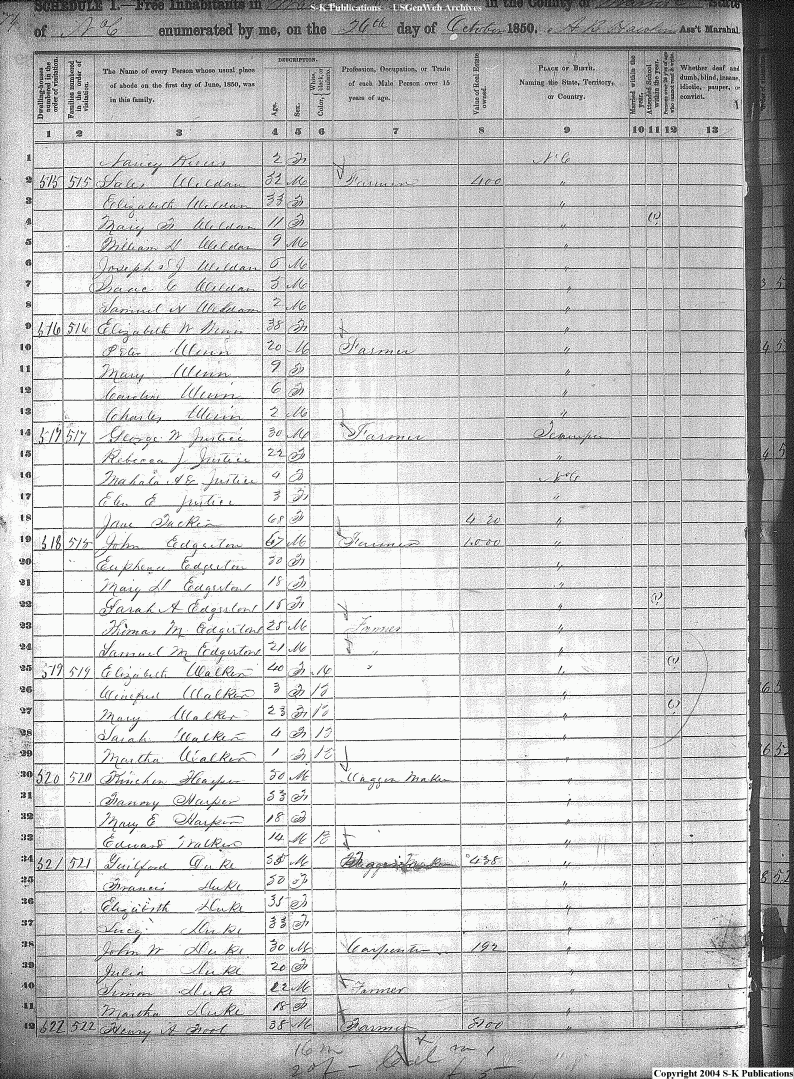 S-K Publications - USGenWeb Archives
SCHEDULE I.—Free Inhabitants in in the County of State
of N C enumerated by me, on the 26th day of October 1850. Ass't Marshal.
Dwelling-houses numbered in the order of visitation.
Families numbered in the order of visitation.
The Name of every Person whose usual place of abode on the first day of June, 1850, was in this family.
DESCRIPTION.
Age.
Sex.
Color,
Profession, Occupation, or Trade of each Male Person over 15 years of age.
Value of Real Estate owned.
PLACE OF BIRTH. Naming the State, Territory, or Country.
Married within the year.
Attended School within the year.
Whether deaf and dumb, blind, insane, idiotic, pauper, or convict.
1 2 3 4 5 6 7 8 9 10 11 12 13
1 Nancy 2 F N C
2 515 515 Weldan 32 M Farmer 400 "
3 Elizabeth Weldan 33 F "
4 Mary F Weldan 11 F " (1)
5 William H Weldan 9 M "
6 Joseph J Weldan 5 M "
7 Isaac C Weldan 3 M "
8 Samuel N Weldam 2 M "
9 516 516 Elizabeth W Winn 38 F "
10 Peter Winn 20 M Farmer "
11 Mary Winn 9 F "
12 Caroline Winn 6 F "
13 Charles Winn 2 M "
14 517 517 George W Justice 30 M Farmer
15 Rebecca J Justice 22 F "
16 Mahala A E Justice 4 F N C
17 Justice 3 F "
18 Jane 68 F 420 "
19 518 518 John Edgerton 67 M Farmer 1,000 "
20 Edgerton 30 F "
21 Mary H Edgerton 18 F "
22 Sarah A Edgerton 15 F " (1)
23 Thomas M Edgerton 25 M Farmer "
24 Samuel M Edgerton 21 M " "
25 519 519 Elizabeth Walker 40 F M " " (1)
26 Winefred Walker 3 F B "
27 Mary Walker 23 F B " (1)
28 Sarah Walker 4 F B "
29 Martha Walker 1 F B "
30 520 520 Kinchen Harper 50 M Waggon Maker "
31 Harper 53 F "
32 Mary E Harper 18 F "
33 Edward Walker 14 M B "
34 521 521 Guilford Duke 55 M 438 "
35 Francis Duke 50 F "
36 Elizabeth Duke 35 F "
37 Lucy Duke 33 F "
38 John W Duke 30 M Carpenter 192 "
39 Julia Duke 20 F "
40 Simon Duke 22 M Farmer "
41 Martha Duke 18 F "
42 522 522 Henry A Fool 38 M Farmer 3100 "
16 m
20 f
Copyright 2004 S-K Publications